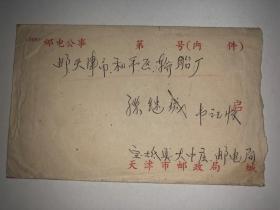 邮电公事 第 号(内 件)
邮天津市和平区轮胎厂
孙继城 书记收
启
宝坻县大中庄邮电局
天津市邮政局 缄